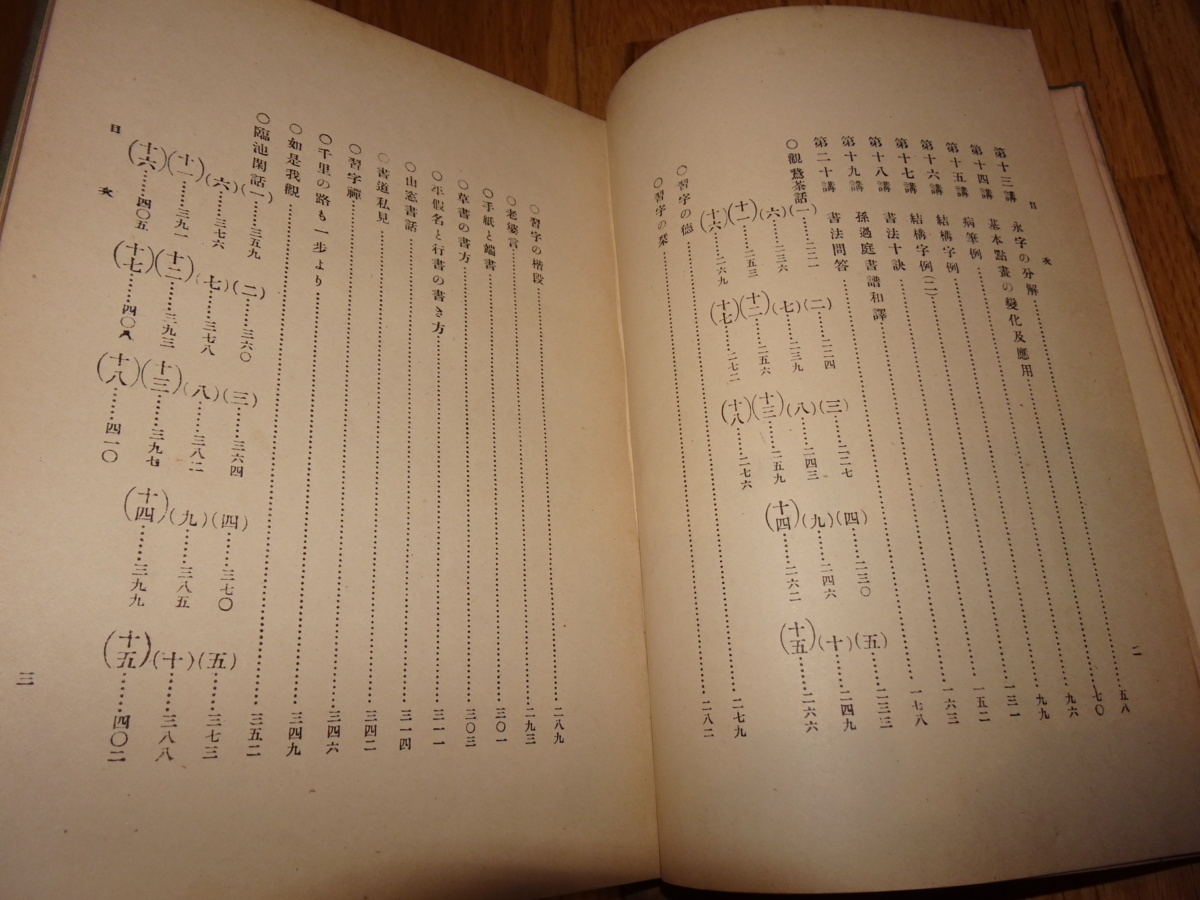 目次
二
第十三講 永字の分解……五八
第十四講 基本點畫の變化及應用……七〇
第十五講 病筆例……九六
第十六講 結構字例……九九
第十七講 結構字例(二)……一三一
第十八講 書法十訣……一五二
第十九講 孫過庭書譜和譯……一六三
第二十講 書法問答……一七八
○觀鵞茶話
(一)……二二一 (二)……二二四 (三)……二二七 (四)……二三〇 (五)……二三三
(六)……二三六 (七)……二三九 (八)……二四三 (九)……二四六 (十)……二四九
(十一)……二五三 (十二)……二五六 (十三)……二五九 (十四)……二六二 (十五)……二六六
(十六)……二六九 (十七)……二七二 (十八)……二七六
○習字の德……二七九
○習字の栞……二八二
○習字の楷段……二八九
○老婆言……二九三
○手紙と端書……三〇一
○草書の書方……三〇三
○平假名と行書の書き方……三一一
○山窓書話……三一四
○書道私見……三四二
○習字禪……三四六
○千里の路も一步より……三四九
○如是我觀……三五二
○臨池閑話
(一)……三五九 (二)……三六〇 (三)……三六四 (四)……三七〇 (五)……三七三
(六)……三七六 (七)……三七八 (八)……三八二 (九)……三八五 (十)……三八八
(十一)……三九一 (十二)……三九三 (十三)……三九七 (十四)……三九九 (十五)……四〇二
(十六)……四〇五 (十七)……四〇八 (十八)……四一〇
目次
三